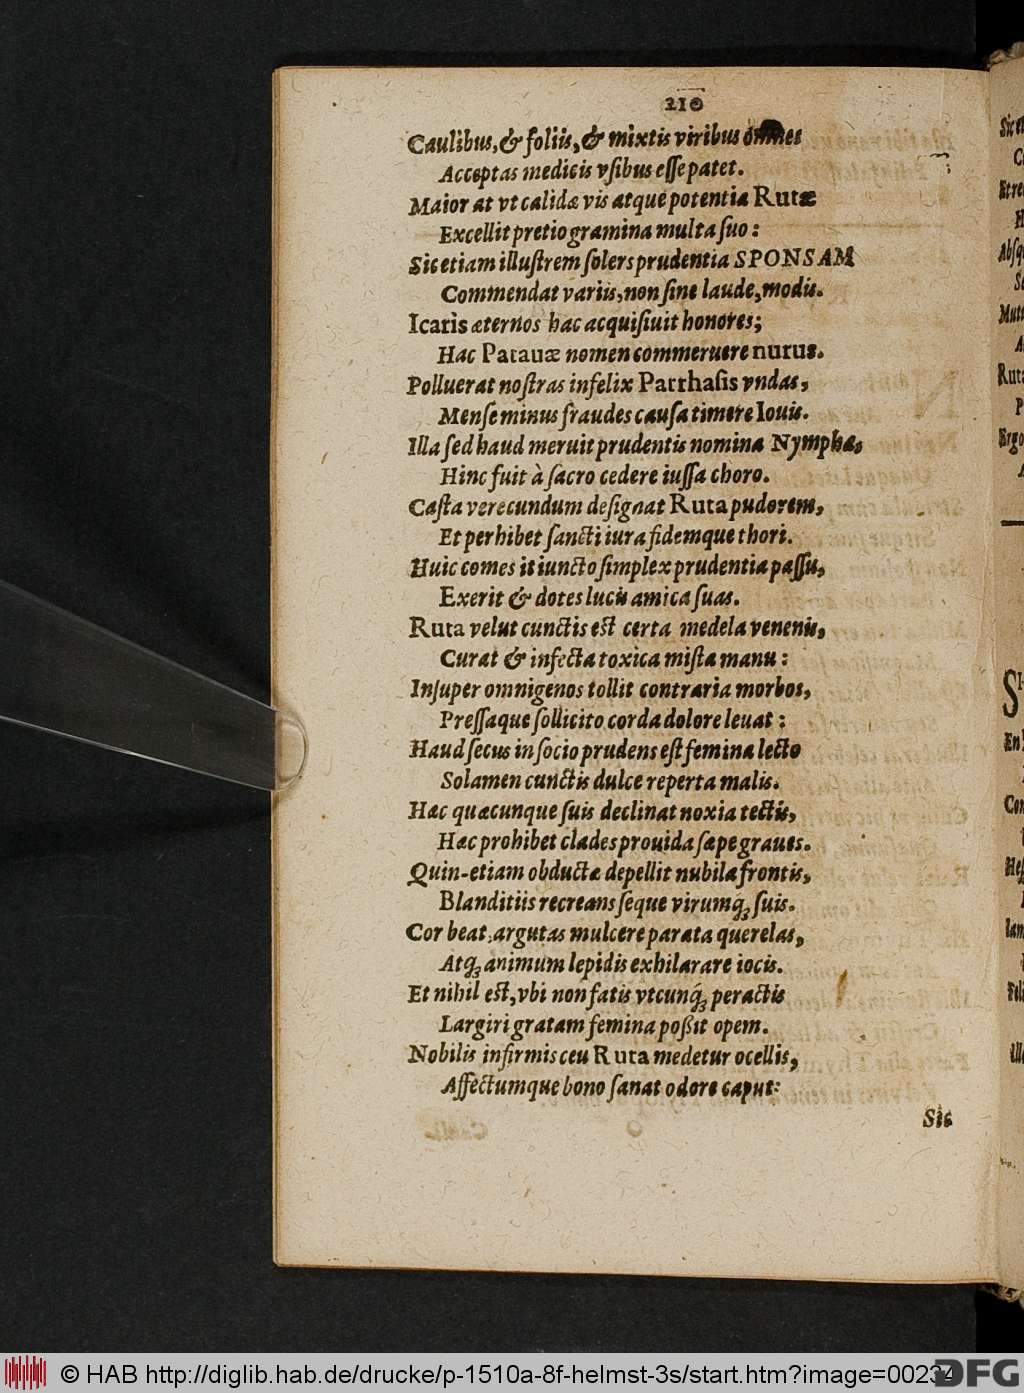 210
Caulibus, & foliis, & mixtis viribus omnes
Acceptas medicis vſibus eſſe patet.
Maior at vt calidæ vis atque potentia Rutæ
Excellit pretio gramina multa ſuo:
Sic etiam illuſtrem ſolers prudentia SPONSAM
Commendat variis, non ſine laude, modis.
Icaris æternos hac acquiſiuit honores;
Hac Patauæ nomen commeruere nurus.
Polluerat noſtras infelix Parrhaſis vndas,
Menſe minus fraudes cauſa timere Iouis.
Illa ſed haud meruit prudentis nomina Nymphæ,
Hinc fuit à ſacro cedere iuſſa choro.
Caſta verecundum deſignat Ruta pudorem,
Et perhibet ſancti iura fidemque thori.
Huic comes it iuncto ſimplex prudentia paſſu,
Exerit & dotes lucis amica ſuas.
Ruta velut cunctis est certa medela venenis,
Curat & infecta toxica miſta manu:
Inſuper omnigenos tollit contraria morbos,
Preſſaque ſollicito corda dolore leuat:
Haud ſecus in ſocio prudens eſt femina lecto
Solamen cunctis dulce reperta malis.
Hæc quæcunque ſuis declinat noxia tectis,
Hæc prohibet clades prouida ſæpe graues.
Quin-etiam obductæ depellit nubila frontis,
Blanditiis recreans ſeque virumq́ꝫ ſuis.
Cor beat, argutas mulcere parata querelas,
Atqꝫ animum lepidis exhilarare iocis.
Et nihil est, vbi non fatis vtcunq́ꝫ peractis
Largiri gratam femina poßit opem.
Nobilis infirmis ceu Ruta medetur ocellis,
Affectumque bono ſanat odore caput:
Sic
© HAB http://diglib.hab.de/drucke/p-1510a-8f-helmst-3s/start.htm?image=00234
DFG